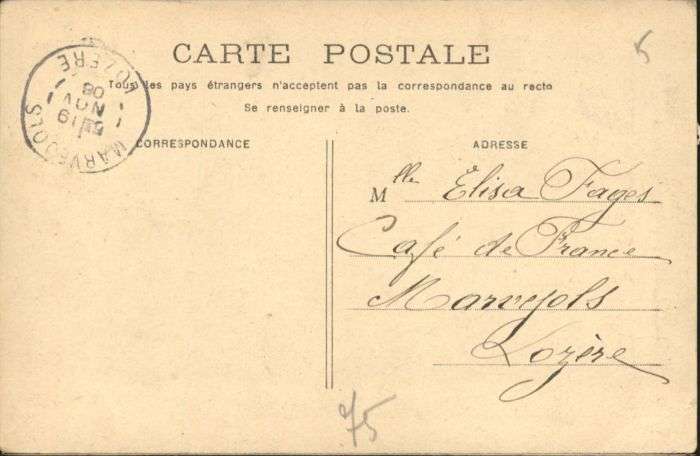 CARTE POSTALE
Tous les pays étrangers n'acceptent pas la correspondance au recto
Se renseigner à la poste.
CORRESPONDANCE
ADRESSE
Mlle Elisa Fages
Café de France
Marvejols
Lozère
MARVEJOLS
LOZERE
19
NOV
08
75